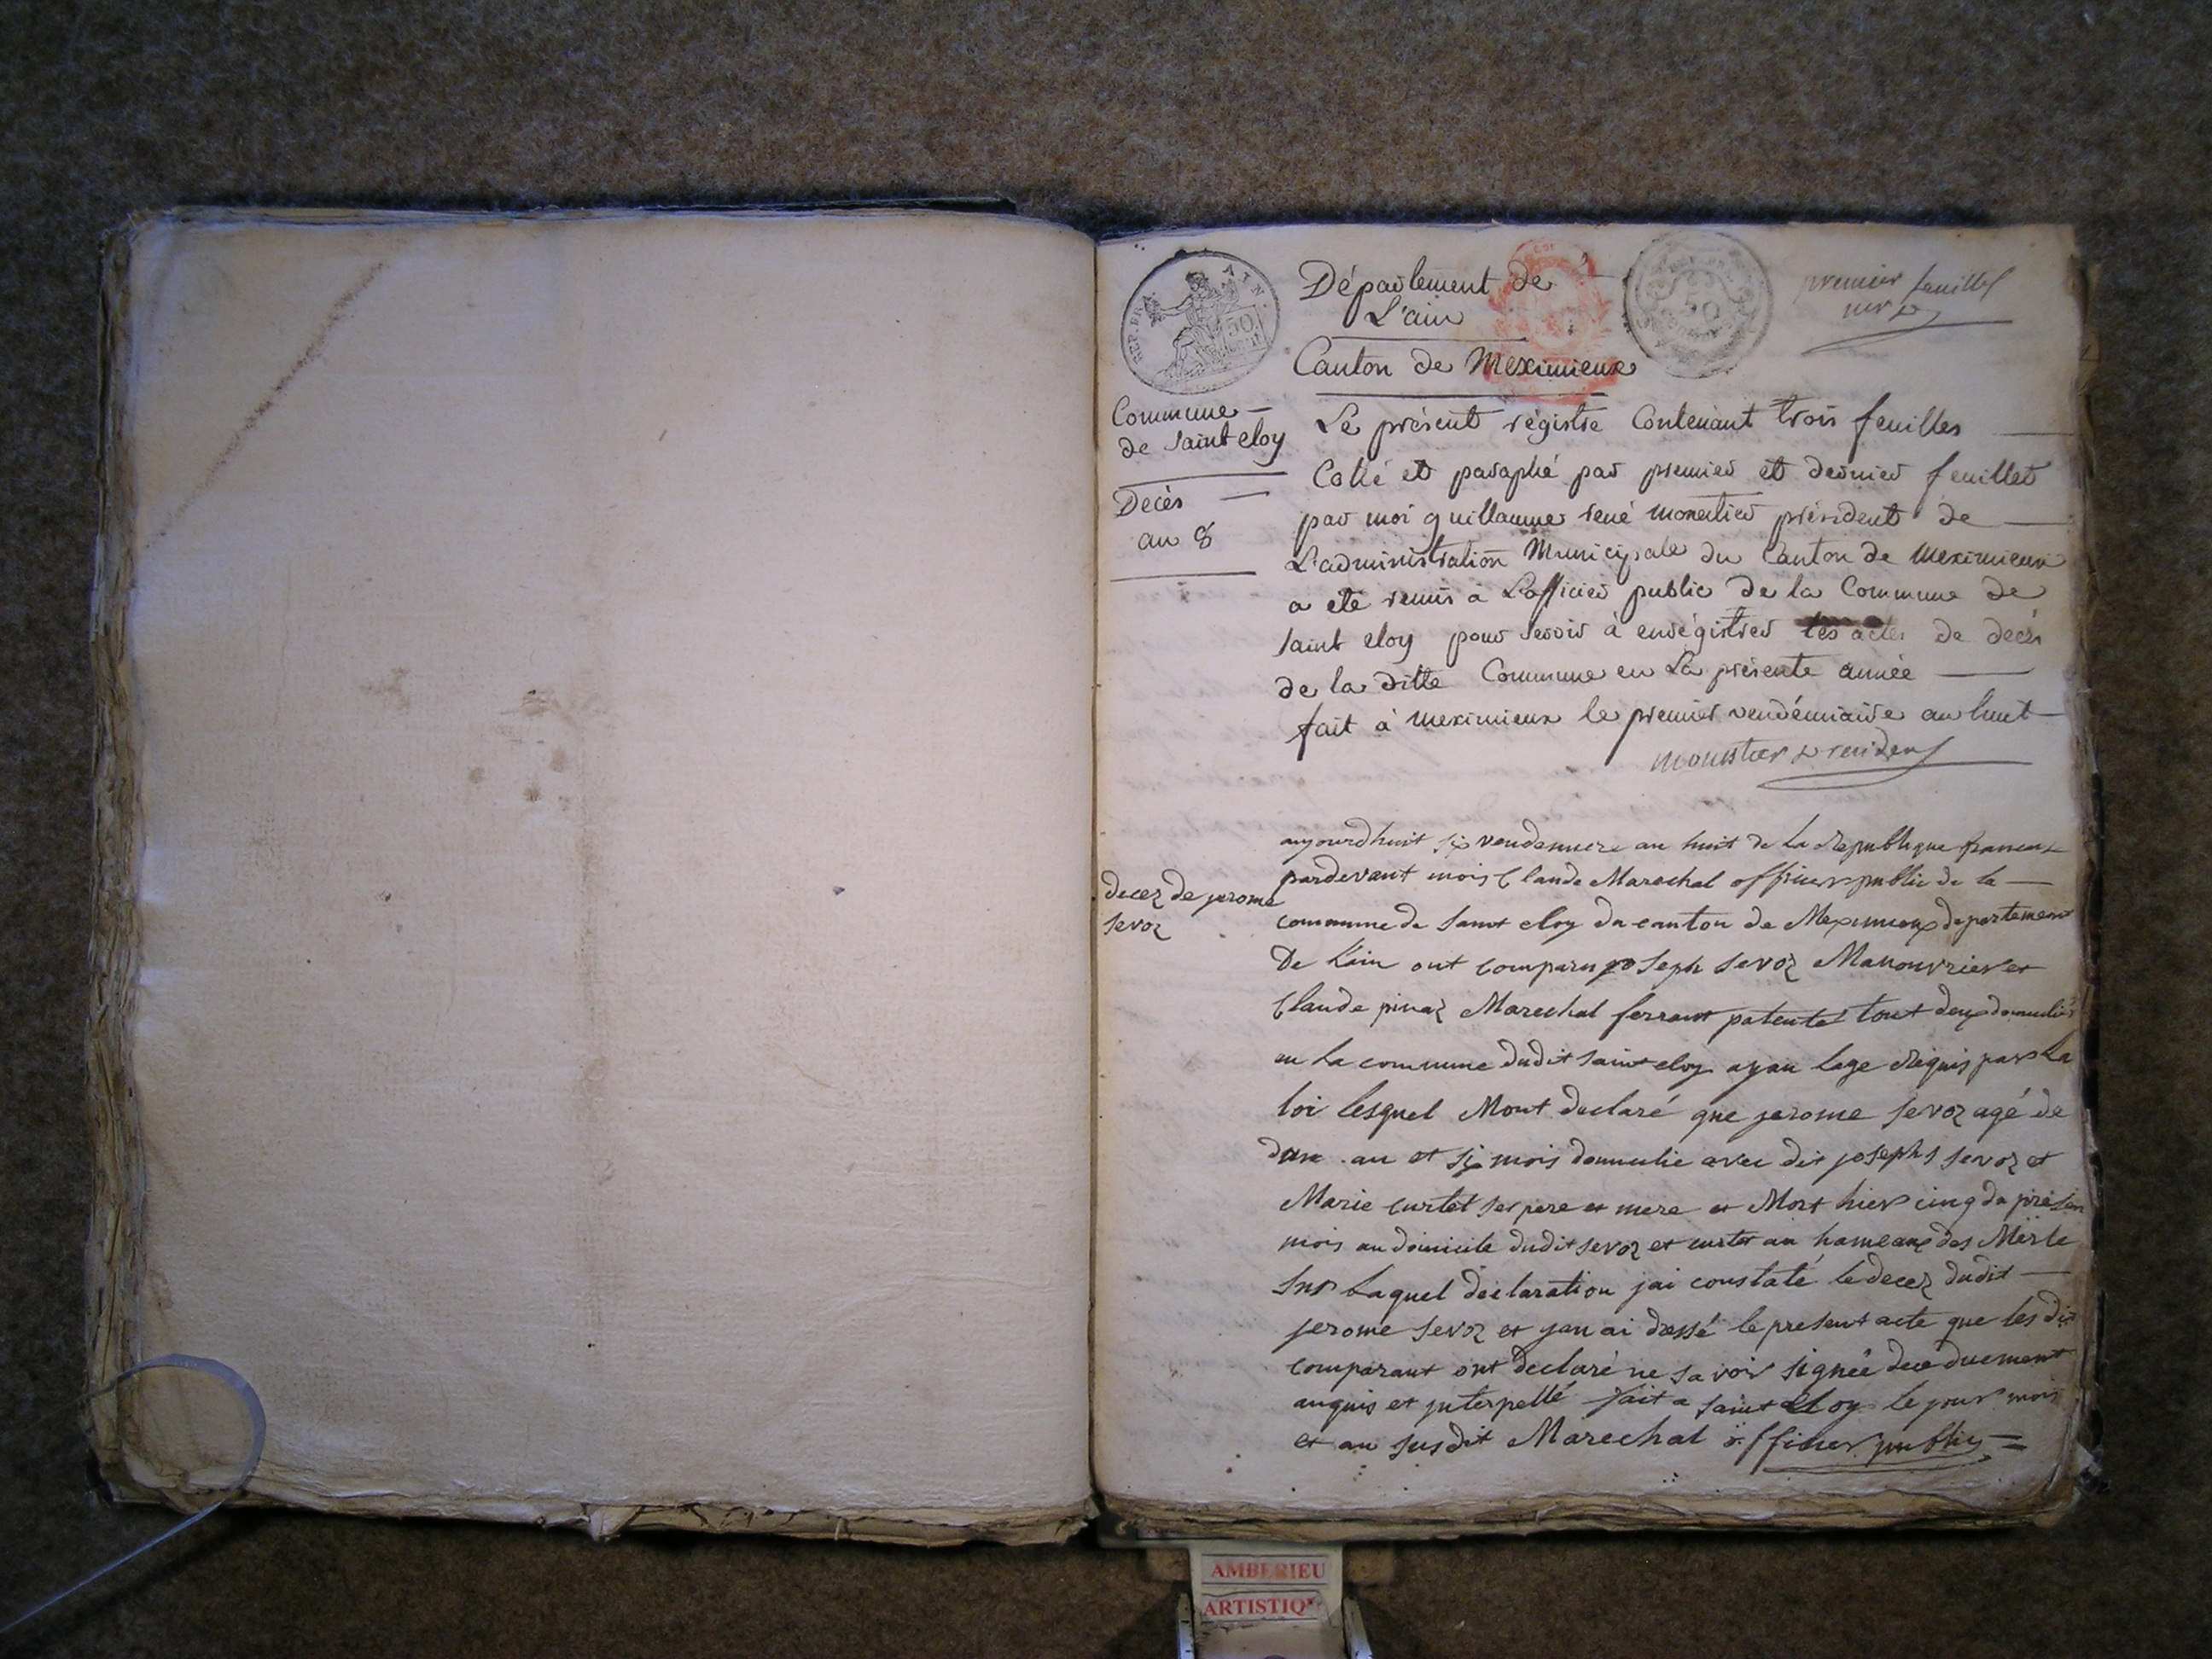 REP. FRA.
AIN.
50
Département de
L'ain
premier feuillet
Canton de Meximieux
Commune
de saint eloy
Décès
an 8
Le présent régistre Contenant trois feuilles
Cotté et paraphé par premier et dernier feuillet
par moi guillaume rené monestier président de
L'administration Municipale du Canton de meximieux
a eté remis à L'officier public de la Commune de
saint eloy pour servir à enrégistrer les actes de decès
de la ditte Commune en La présente année
fait à meximieux le premier vendémiaire an huit
monestier president
decez de jerome
sevoz
aujourdhuit six vendemiere an huit de la Republique francaise
pardevant mois Claude Marechal officier public de la
commune de saint eloy du canton de Meximieux departement
De L'ain ont comparu joseph sevoz Manouvrier et
Claude pinaz Marechal ferrant patenté tout deux domicilié
en la commune dudit saint eloy ayan lage Requis par La
loi lesquel Mont declaré que jerome sevoz agé de
dun an et six mois domicilie avec dit josephs sevoz et
Marie curtet ses pere et mere et Mort hier cinq du présen
mois au domicile dudit sevoz et curtet au hameaux des Merle
sur Laquel déclaration jai constaté le decez dudit
jerome sevoz et jan ai dressé le present acte que les dit
comparant ont declaré ne savoir signée de ce duement
anquis et interpellé fait a saint Eloy le jour mois
et an susdit Marechal officier public
AMBERIEU
ARTISTIQ